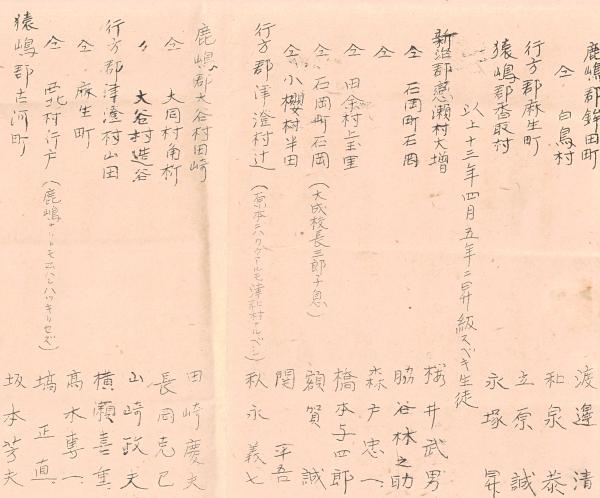 鹿嶋郡鉾田町 渡邉清
仝 白鳥村 和泉恭
行方郡麻生町 立原誠
猿嶋郡香取村 永塚昇
以上十三年四月五年ニ昇級スベキ生徒
新治郡恋瀬村大増 桜井武男
仝 石岡町石岡 脇谷林之助
仝 森戸忠一
仝 田余村上玉里 橋本与四郎
仝 石岡町石岡 (大成校長三郎子息) 額賀誠
仝 小櫻村半田 関平吾
行方郡津澄村辻 (原本ニハ 津澄村 ナルベシ) 秋永義七
鹿嶋郡大谷村田崎 田崎慶夫
仝 大同村角折 長岡克巳
〃 大谷村造谷 山崎政夫
行方郡津澄村山田 横瀬喜重
仝 麻生町 髙木専一
仝 西北村行戸 (鹿嶋 ハッキリセズ) 塙正直
猿嶋郡古河町 坂本芳夫